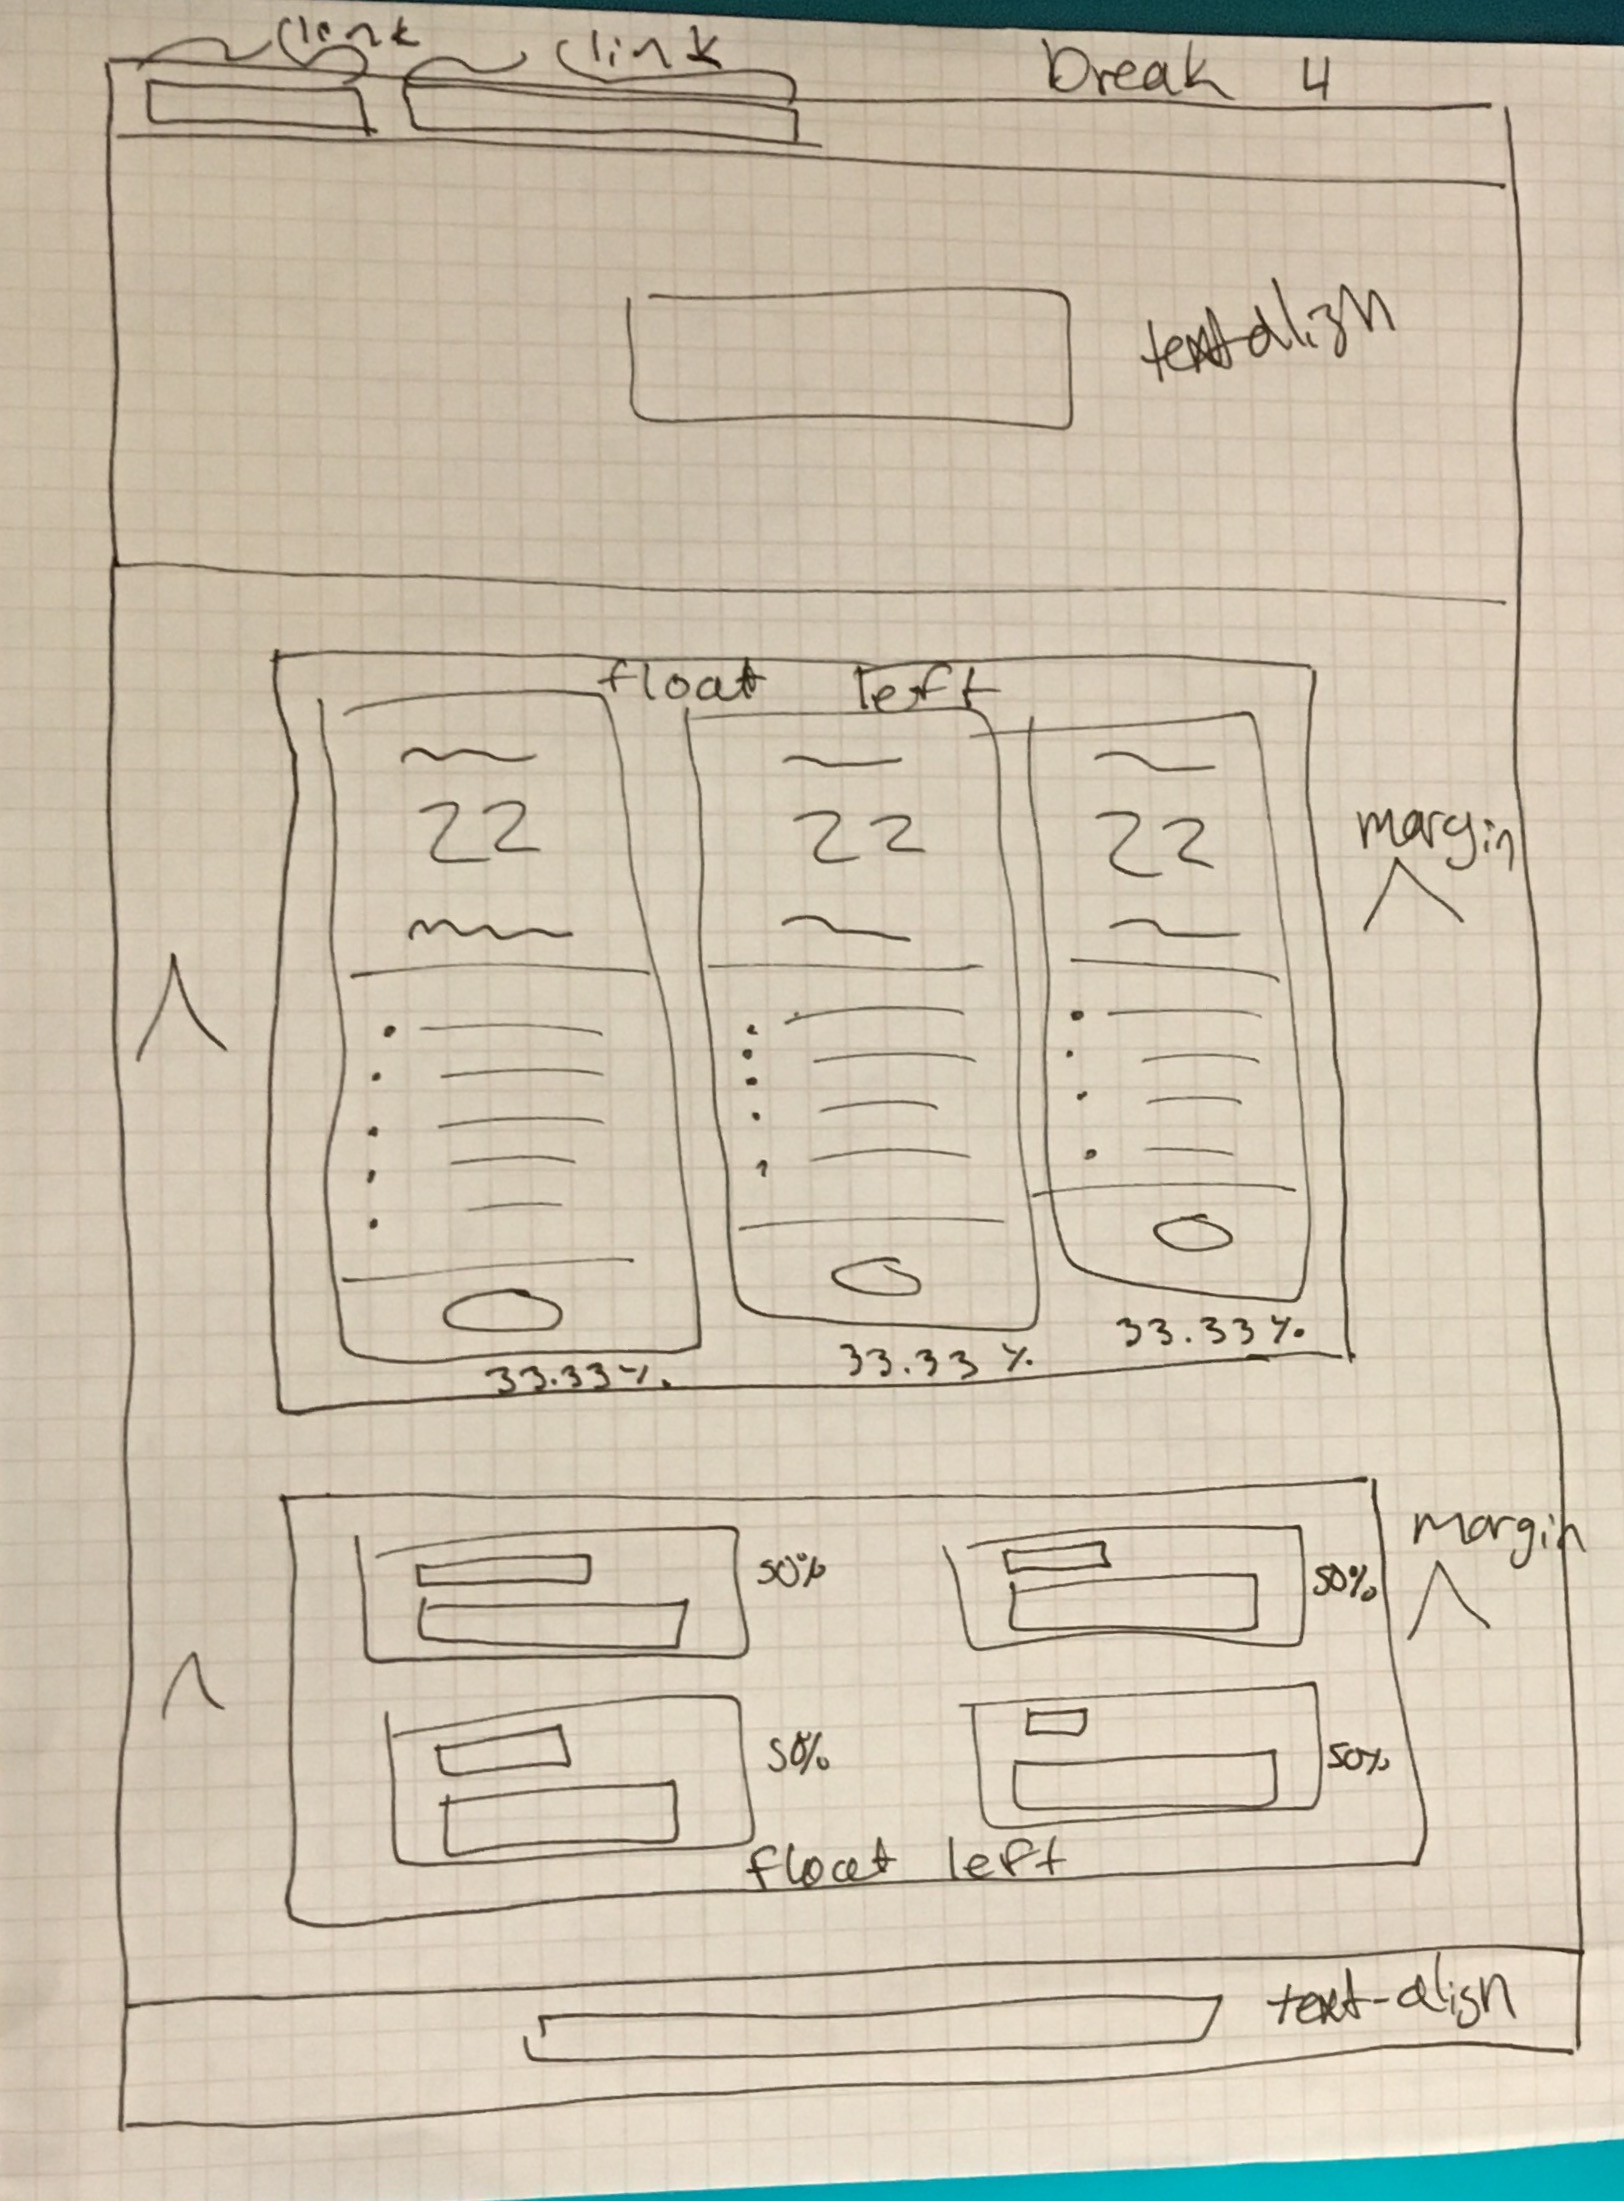 link link
break 4
text-align
float left
22 22 22
margin
33.33% 33.33% 33.33%
margin
50% 50%
50% 50%
float left
text-align